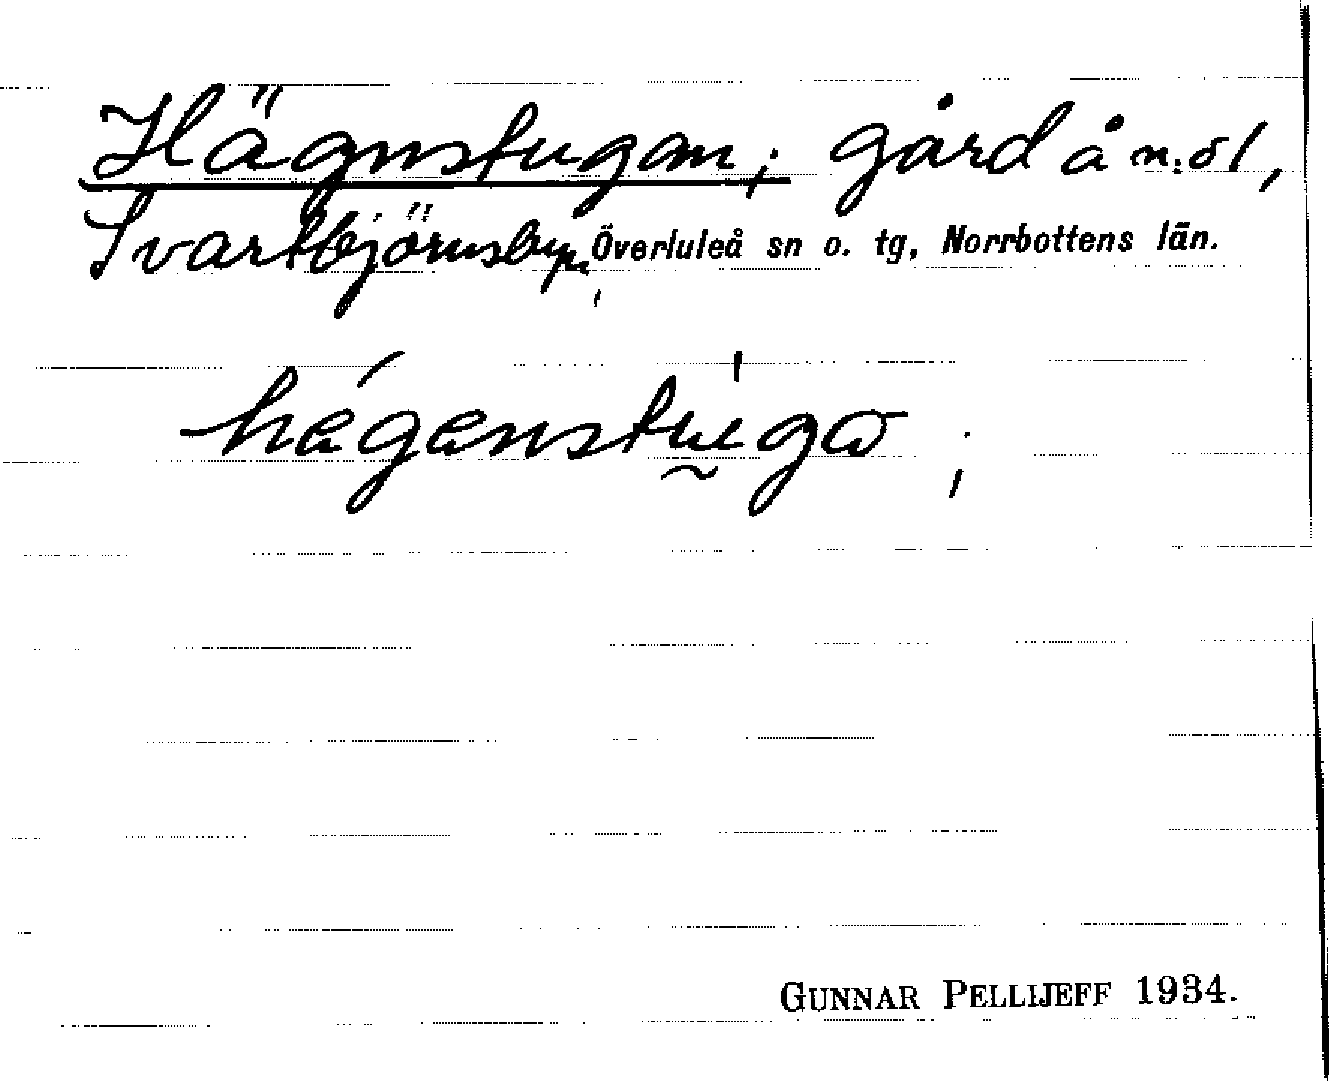 Hägnstugan; gård å n:o 1,
Svartbjörnsbyn, Överluleå sn o. tg, Norrbottens län.
hägänstugo ;
GUNNAR PELLIJEFF 1934.